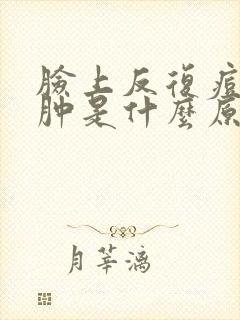 臉上反復痘
肿是什麼原
月莘漓